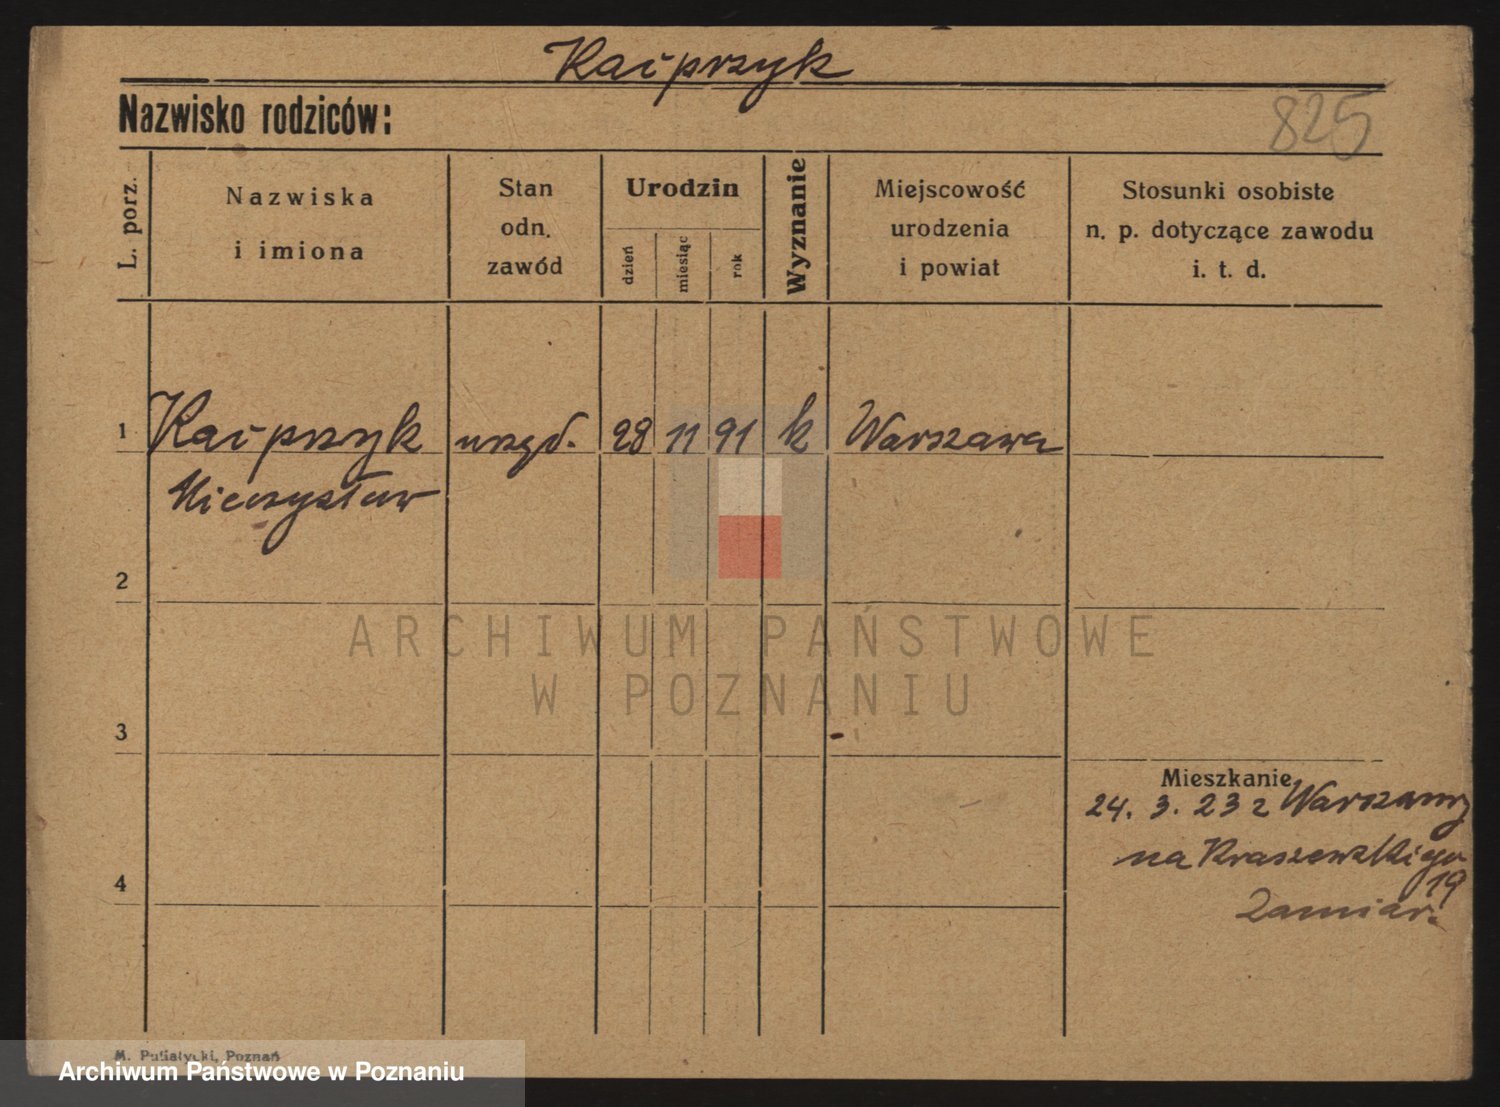 Kacprzyk
Nazwisko rodziców:
825
L. porz.
Nazwiska
i imiona
Stan
odn.
zawód
Urodzin
dzień
miesiąc
rok
Wyznanie
Miejscowość
urodzenia
i powiat
Stosunki osobiste
n. p. dotyczące zawodu
i. t. d.
1 Kacprzyk urzęd. 28 11 91 k Warszawa
Mieczysław
2
ARCHIWUM PAŃSTWOWE
W POZNANIU
3
Mieszkanie
24. 3. 23 z Warszawy
na Kraszewskiego
19
4
Zamiar.
M. Putiatycki, Poznań
Archiwum Państwowe w Poznaniu